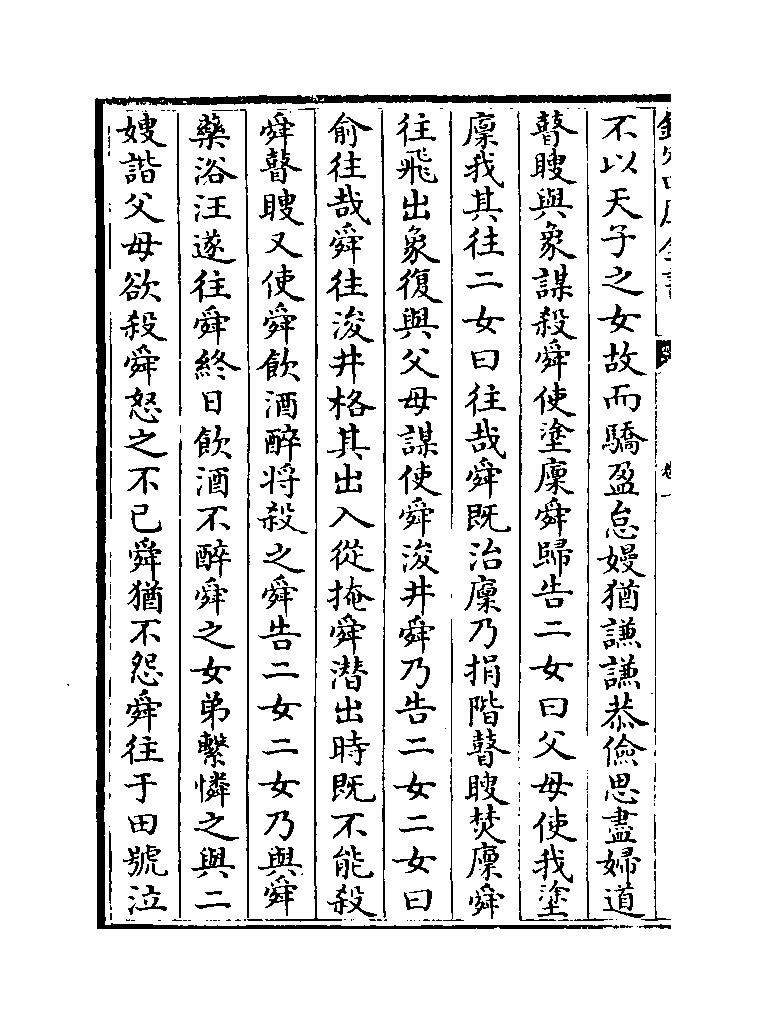 不以天子之女故而驕盈怠嫚猶謙謙恭儉思盡婦道
瞽瞍與象謀殺舜使塗廩舜歸告二女曰父母使我塗
廩我其往二女曰往哉舜既治廩乃捐階瞽瞍焚廩舜
往飛出象復與父母謀使舜浚井舜乃告二女二女曰
俞往哉舜往浚井格其出入從掩舜潛出時既不能殺
舜瞽瞍又使舜飲酒醉將殺之舜告二女二女乃與舜
藥浴汪遂往舜終日飲酒不醉舜之女弟繫憐之與二
嫂諧父母欲殺舜怒之不已舜猶不怨舜往于田號泣